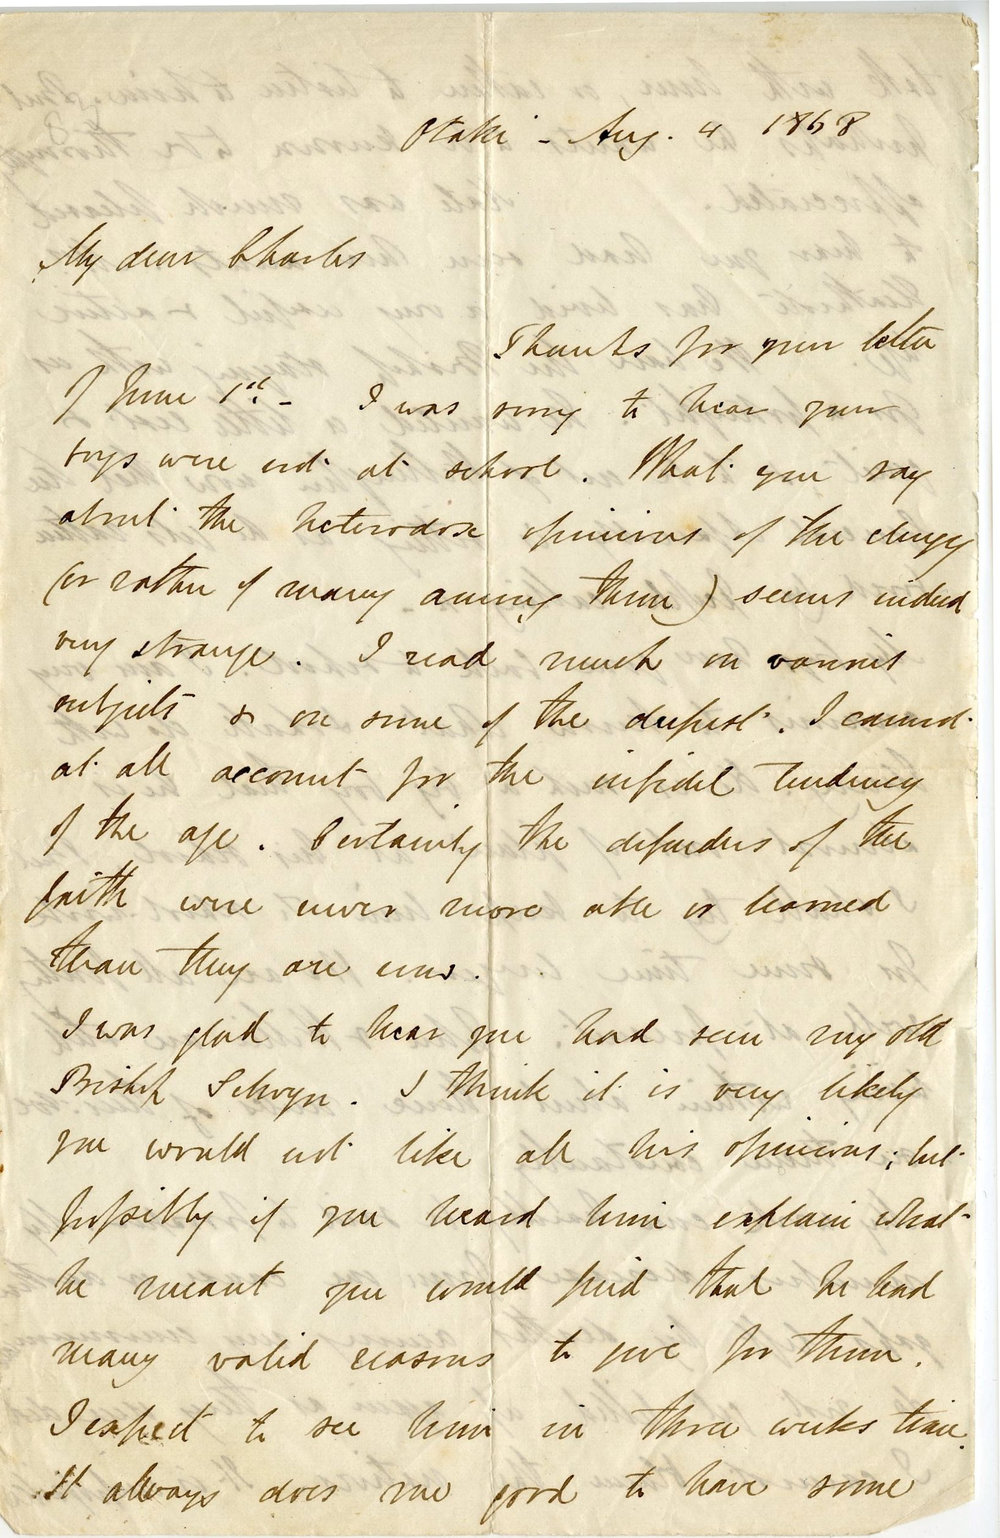 Otaki - Aug. 4 1868
My dear Charles
Thanks for your letter
of June 1st. - I was sorry to hear your
boys were not at school. What you say
about the heterodox opinions of the clergy
(or rather of many among them) seems indeed
very strange. I read much on various
subjects & on some of the deepest. I cannot
at all account for the infidel tendency
of the age. Certainly the defenders of the
faith were never more able or learned
than they are now.
I was glad to hear you had seen my old
Bishop Selwyn. I think it is very likely
you would not like all his opinions; but
possibly if you heard him explain what
he meant you would find that he had
many valid reasons to give for them.
I expect to see him in three weeks time.
It always does me good to have some